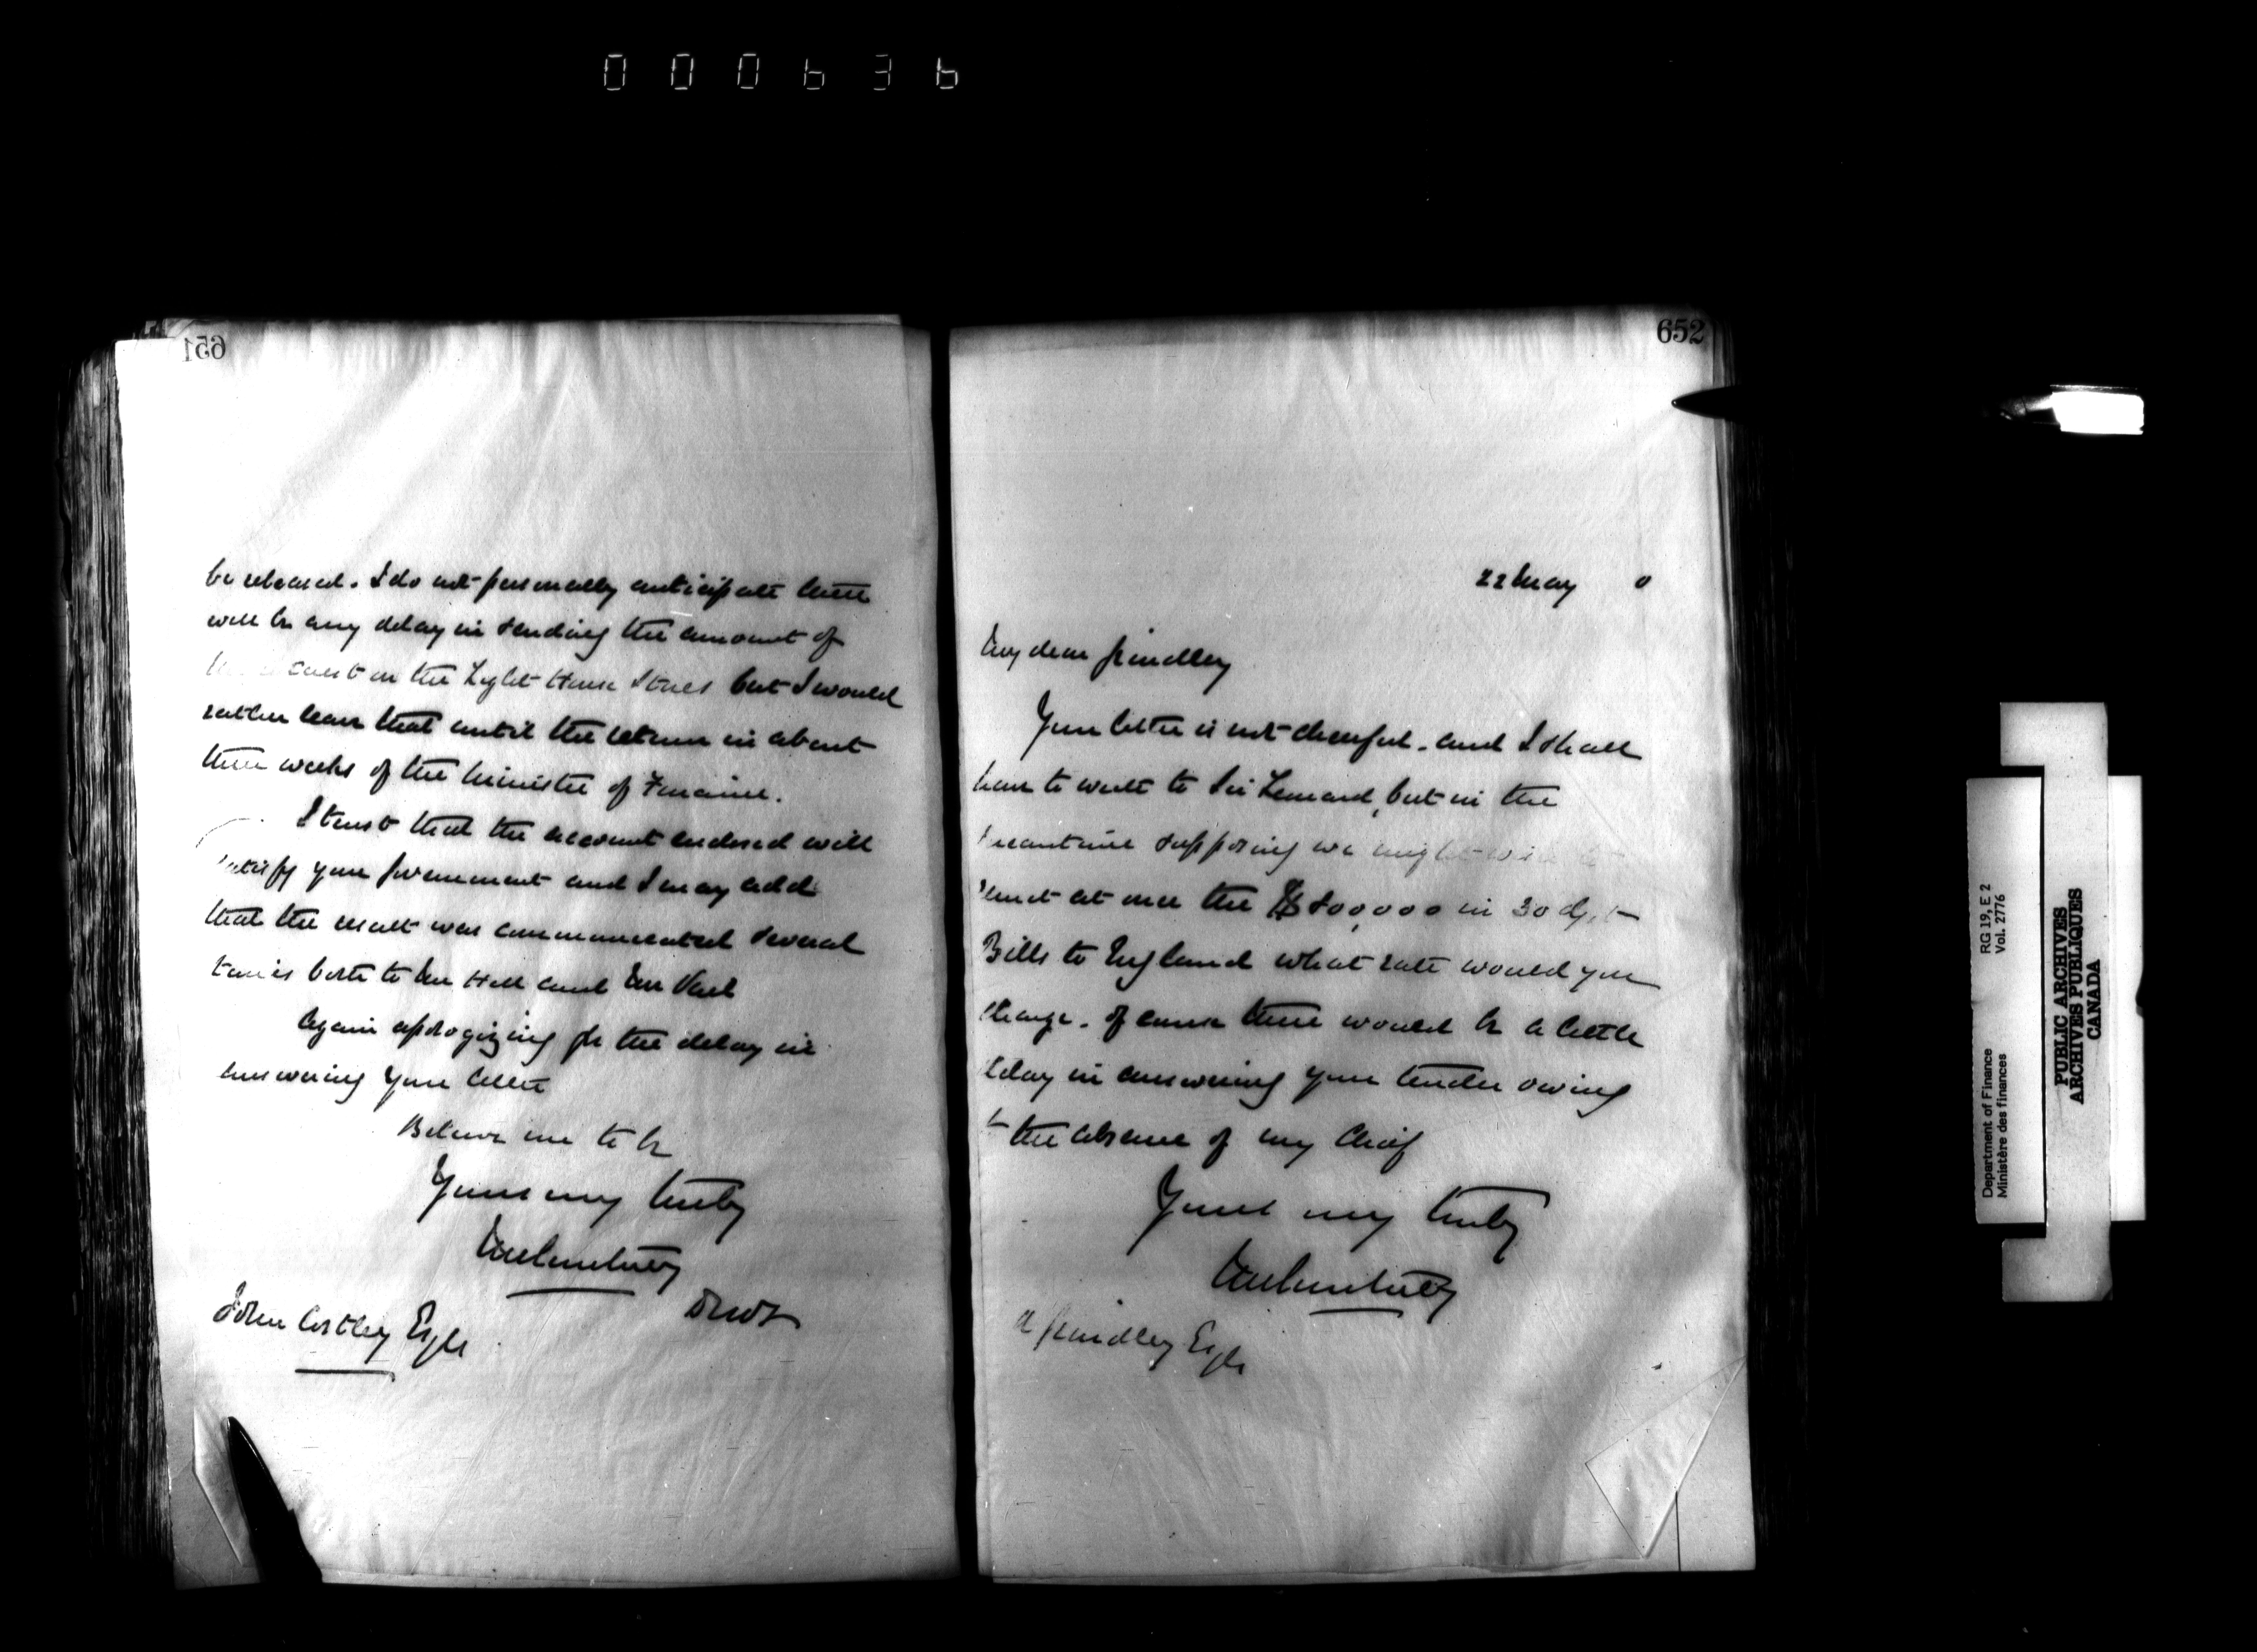 000636
651
be released. I do not personally anticipate there
will be any delay in sending the amount of
on the Light House Stores but I would
rather leave that until the return in about
three weeks of the Minister of Finance.
I trust that the account enclosed will
satisfy your Government and I may add
that the result was communicated several
times both to Mr Hill and Mr Vail
Again apologizing for the delay in
answering your letter
Believe me to be
Yours very truly
JM Courtney
DMF
John Costley Esqre
652
22 May 0
My dear Grindley
Your letter is not cheerful. and I shall
have to write to Sir Leonard, but in the
meantime supposing we might wish to
remit at once the $800,000 in 30 d/st
Bills to England what rate would you
charge. Of course there would be a little
delay in answering your tender owing
to the absence of my Chief
Yours very truly
JM Courtney
R Grindley Esqre
Department of Finance
Ministère des finances
RG 19, E 2
Vol. 2776
PUBLIC ARCHIVES
ARCHIVES PUBLIQUES
CANADA